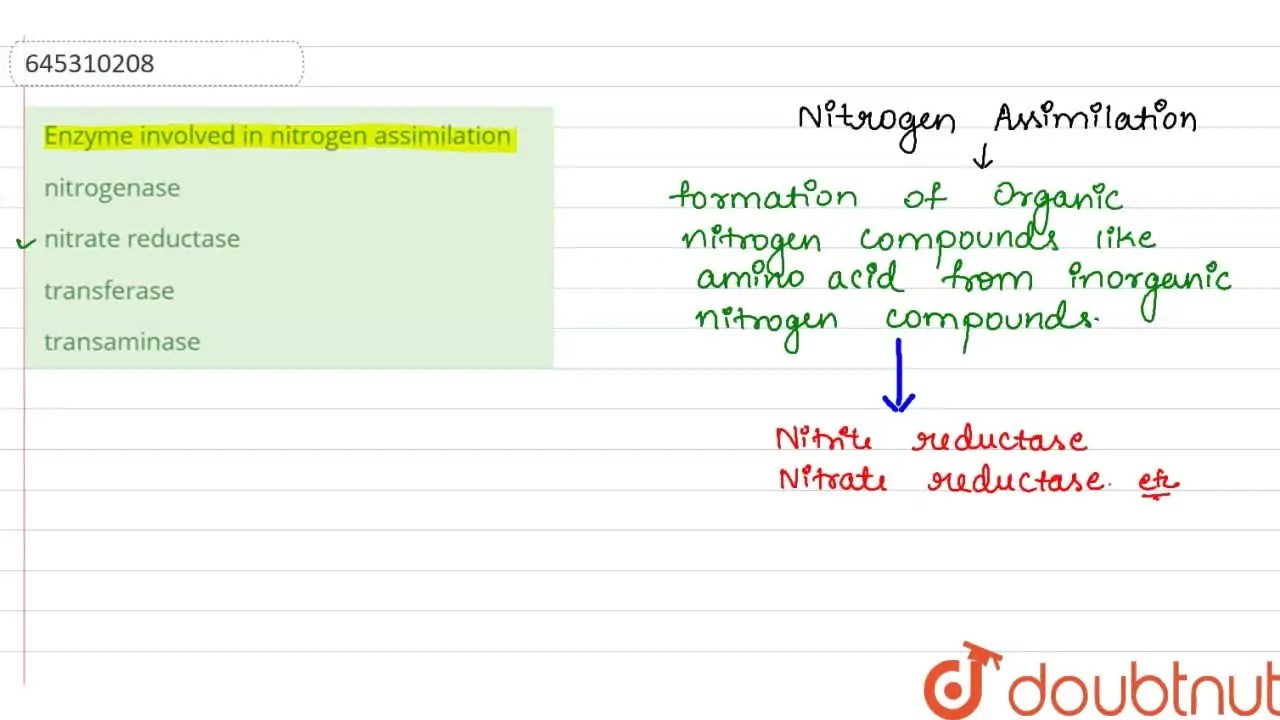 645310208
Enzyme involved in nitrogen assimilation
nitrogenase
nitrate reductase
transferase
transaminase
Nitrogen Assimilation
formation of Organic
nitrogen compounds like
amino acid from inorganic
nitrogen compounds.
Nitrite reductase
Nitrate reductase. etc
doubtnut